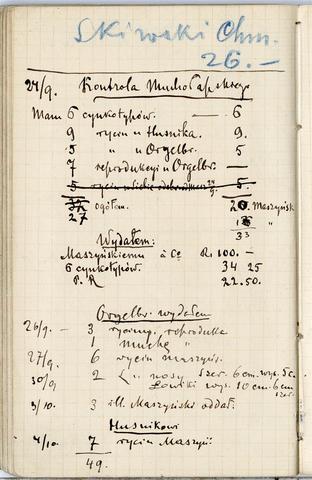 Skiwski Ohm.
26.—
24/9. Kontrola
Mam 6 cynkotypów. — 6
9 rycin u Husnika. 9
5 " u Orgelbr. 5
7 reprodukcyi u Orgelbr. —
5 5.
27 ogółem. Maszyńsk
33 "
Wydałem:
Maszyńskiemu à Cę R. 100.—
6 cynkotypów. 34 25
P. R 22.50.
Orgelbr. wydałem
26/9. — 3 reprodukc
1 muchę "
27/9. 6 rycin Maszyń.
30/9 2 nosy szer. 6 cm. wys. 5 c.
wys. 10 cm. 6 cm
szer.
3/10. 3 ill. Maszyński oddał.
Husnikowi
4/10. 7 rycin Maszyń:
49.